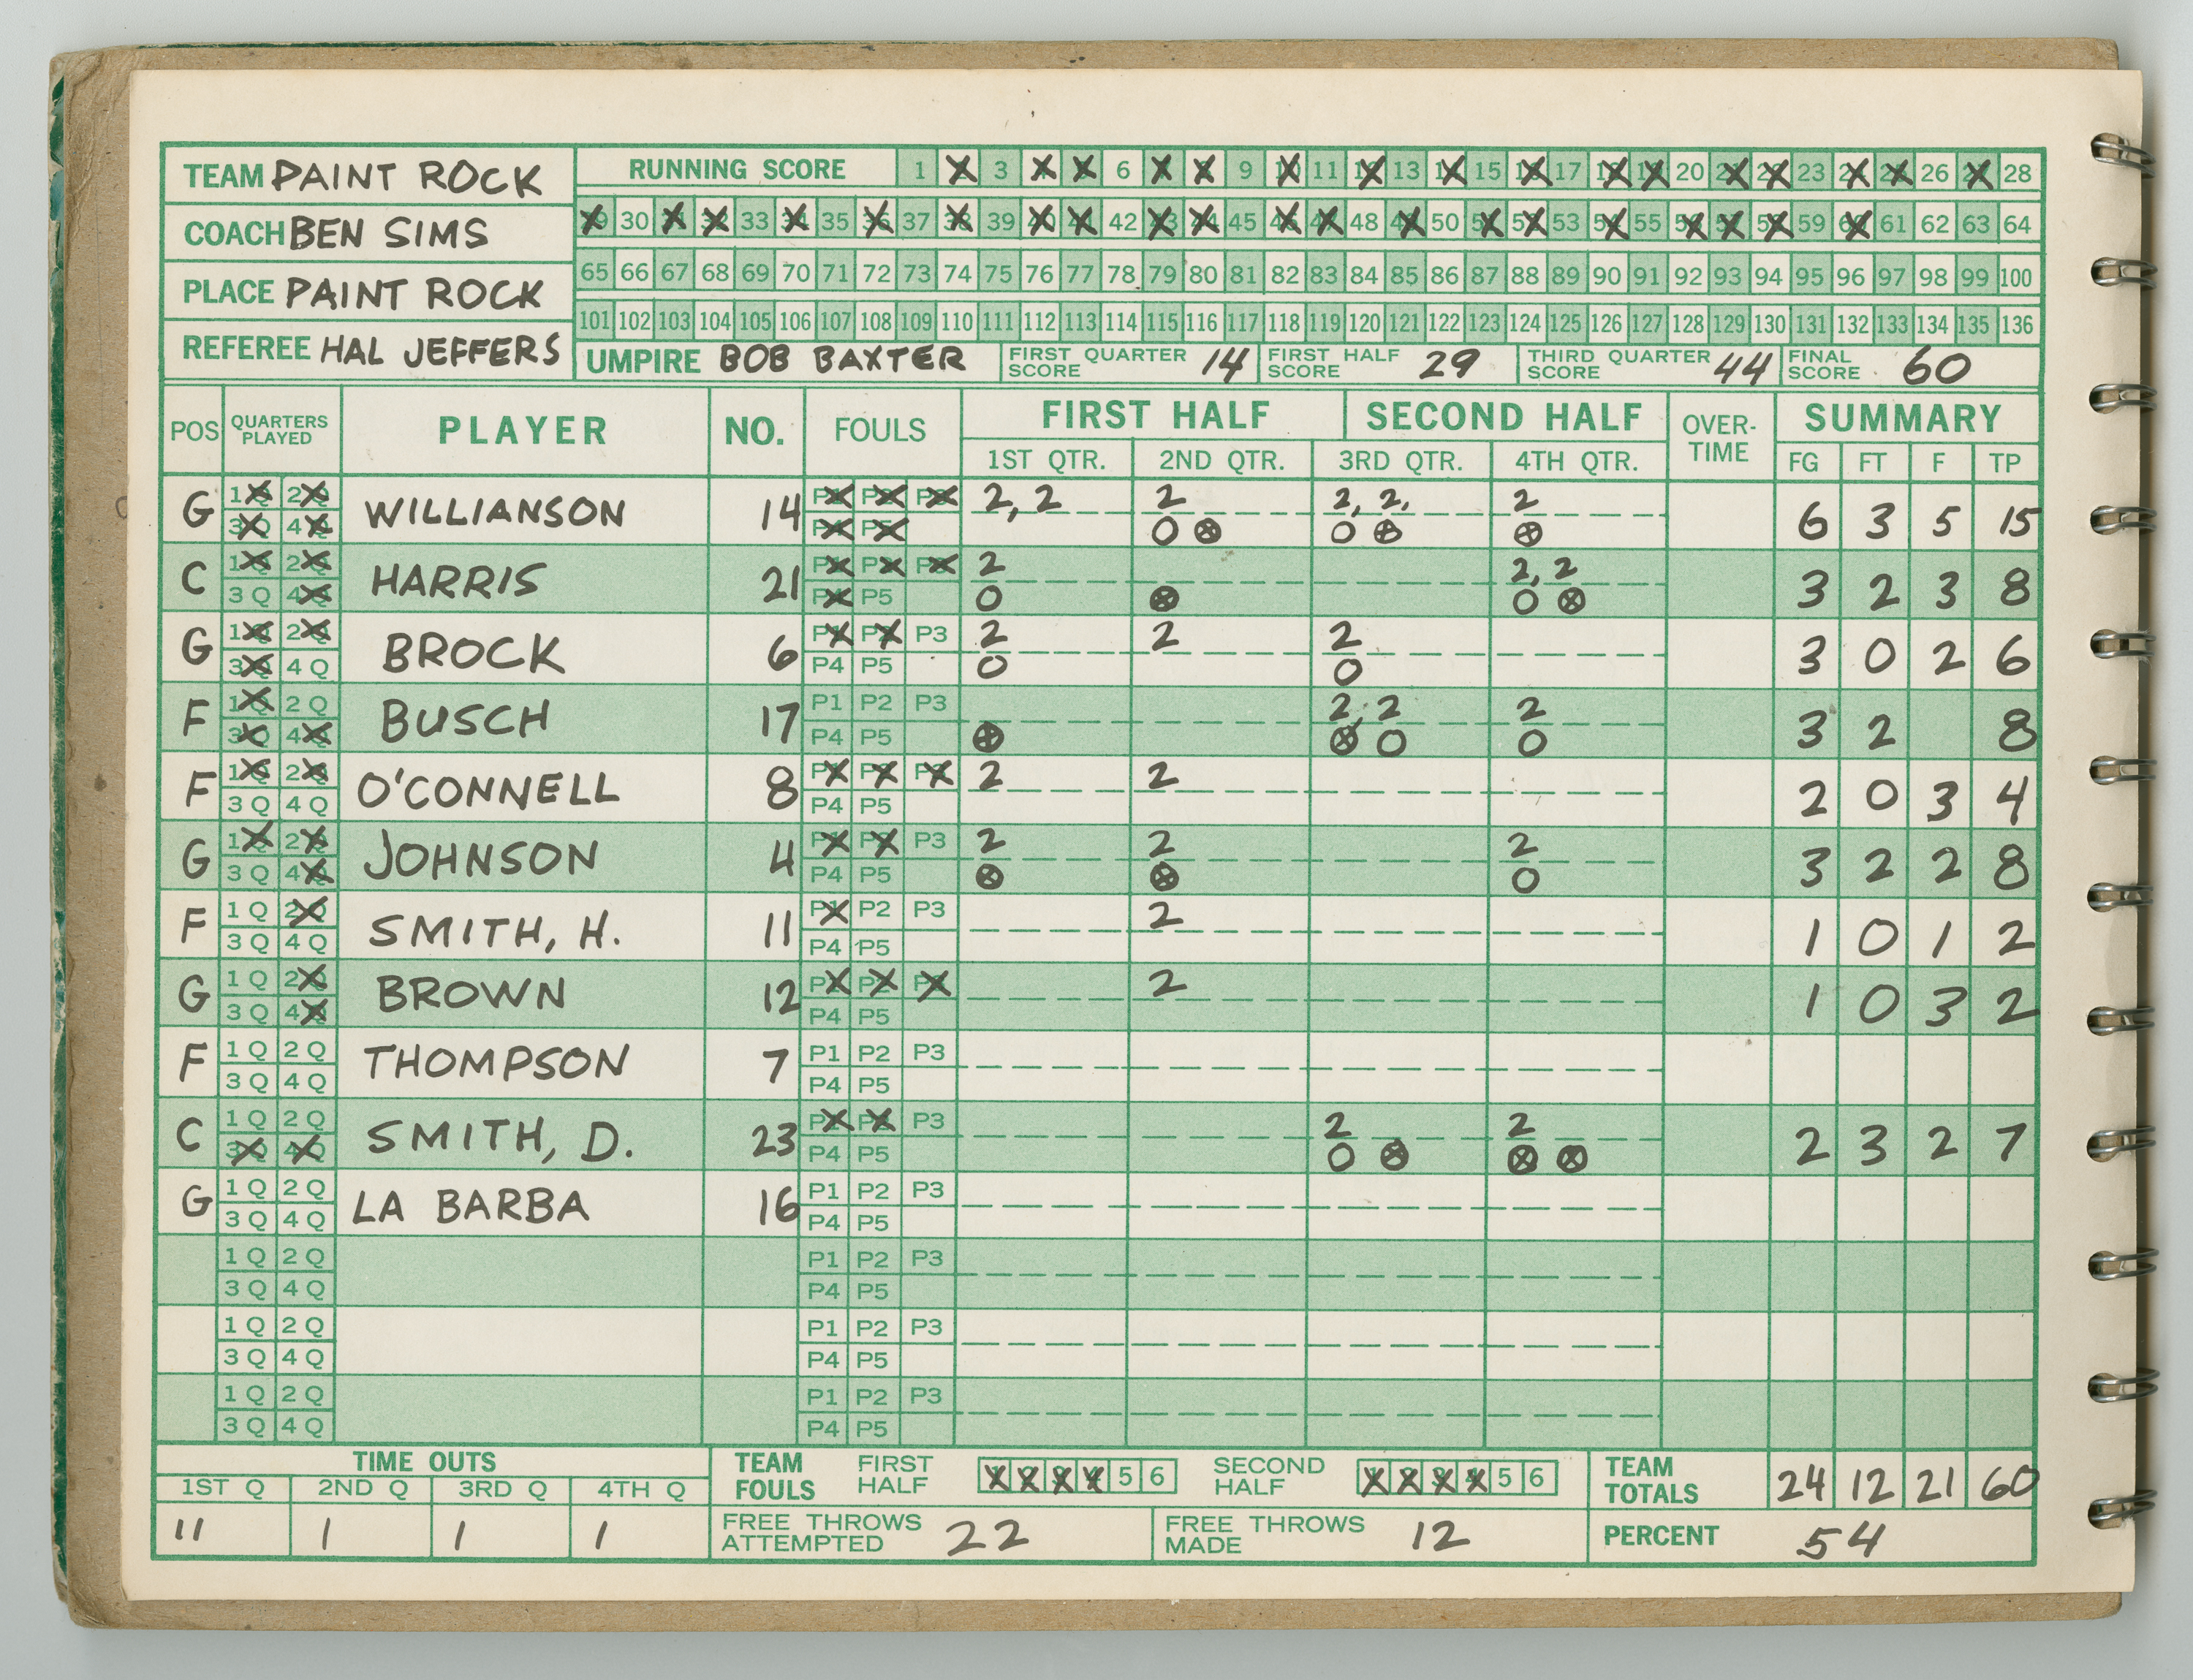 TEAM PAINT ROCK
COACH BEN SIMS
PLACE PAINT ROCK
REFEREE HAL JEFFERS
RUNNING SCORE 1 3 6 9 11 13 15 17 20 23 26 28
30 33 35 37 39 42 45 48 50 53 55 59 61 62 63 64
65 66 67 68 69 70 71 72 73 74 75 76 77 78 79 80 81 82 83 84 85 86 87 88 89 90 91 92 93 94 95 96 97 98 99 100
101 102 103 104 105 106 107 108 109 110 111 112 113 114 115 116 117 118 119 120 121 122 123 124 125 126 127 128 129 130 131 132 133 134 135 136
UMPIRE BOB BAXTER FIRST QUARTER SCORE 14 FIRST HALF SCORE 29 THIRD QUARTER SCORE 44 FINAL SCORE 60
POS QUARTERS PLAYED PLAYER NO. FOULS FIRST HALF SECOND HALF OVER-TIME SUMMARY
1ST QTR. 2ND QTR. 3RD QTR. 4TH QTR. FG FT F TP
G 1Q 2Q 3Q 4Q WILLIANSON 14 P1 P2 P3 P4 P5 2, 2 2 O ⊗ 2, 2, O ⊗ 2 ⊗ 6 3 5 15
C 1Q 2Q 3Q 4Q HARRIS 21 P1 P2 P3 P4 P5 2 O ⊗ 2, 2 O ⊗ 3 2 3 8
G 1Q 2Q 3Q 4Q BROCK 6 P1 P2 P3 P4 P5 2 O 2 2 O 3 0 2 6
F 1Q 2Q 3Q 4Q BUSCH 17 P1 P2 P3 P4 P5 ⊗ 2, 2 ⊗ O 2 O 3 2 8
F 1Q 2Q 3Q 4Q O'CONNELL 8 P1 P2 P3 P4 P5 2 2 2 0 3 4
G 1Q 2Q 3Q 4Q JOHNSON 4 P1 P2 P3 P4 P5 2 ⊗ 2 ⊗ 2 O 3 2 2 8
F 1Q 2Q 3Q 4Q SMITH, H. 11 P1 P2 P3 P4 P5 2 1 0 1 2
G 1Q 2Q 3Q 4Q BROWN 12 P1 P2 P3 P4 P5 2 1 0 3 2
F 1Q 2Q 3Q 4Q THOMPSON 7 P1 P2 P3 P4 P5
C 1Q 2Q 3Q 4Q SMITH, D. 23 P1 P2 P3 P4 P5 2 O ⊗ 2 ⊗ ⊗ 2 3 2 7
G 1Q 2Q 3Q 4Q LA BARBA 16 P1 P2 P3 P4 P5
1Q 2Q 3Q 4Q P1 P2 P3 P4 P5
1Q 2Q 3Q 4Q P1 P2 P3 P4 P5
1Q 2Q 3Q 4Q P1 P2 P3 P4 P5
TIME OUTS
1ST Q 2ND Q 3RD Q 4TH Q
11 1 1 1
TEAM FOULS FIRST HALF 1 2 3 4 5 6 SECOND HALF 1 2 3 4 5 6
TEAM TOTALS 24 12 21 60
FREE THROWS ATTEMPTED 22 FREE THROWS MADE 12 PERCENT 54